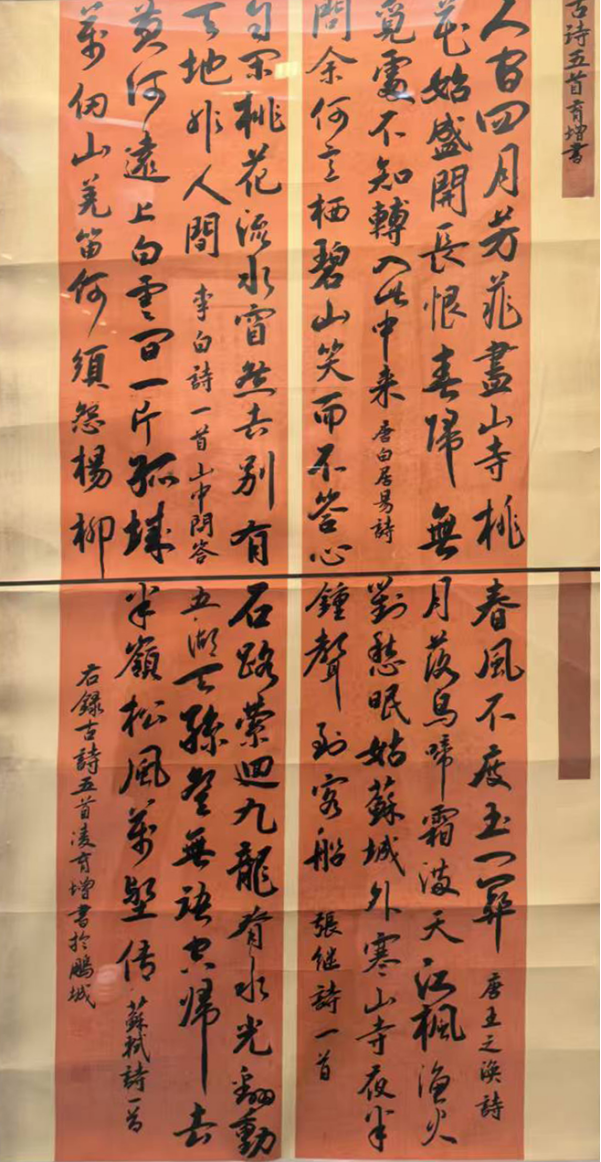 古詩五首育增書
人间四月芳菲盡山寺桃
花始盛開長恨春歸無
覓處不知轉入此中来 唐白居易詩
問余何意栖碧山笑而不答心
自闲桃花流水窅然去别有
天地非人間 李白詩一首山中問答
黄河遠上白雲间一片孤城
萬仞山羌笛何須怨楊柳
春風不度玉门關 唐王之渙詩
月落烏啼霜满天江楓渔火
對愁眠姑蘇城外寒山寺夜半
鍾聲到客船 張继詩一首
石路縈迴九龍脊水光翻動
五湖天孫登無語空歸去
半嶺松風萬壑传 蘇軾詩一首
右録古詩五首凌育增書於鵬城